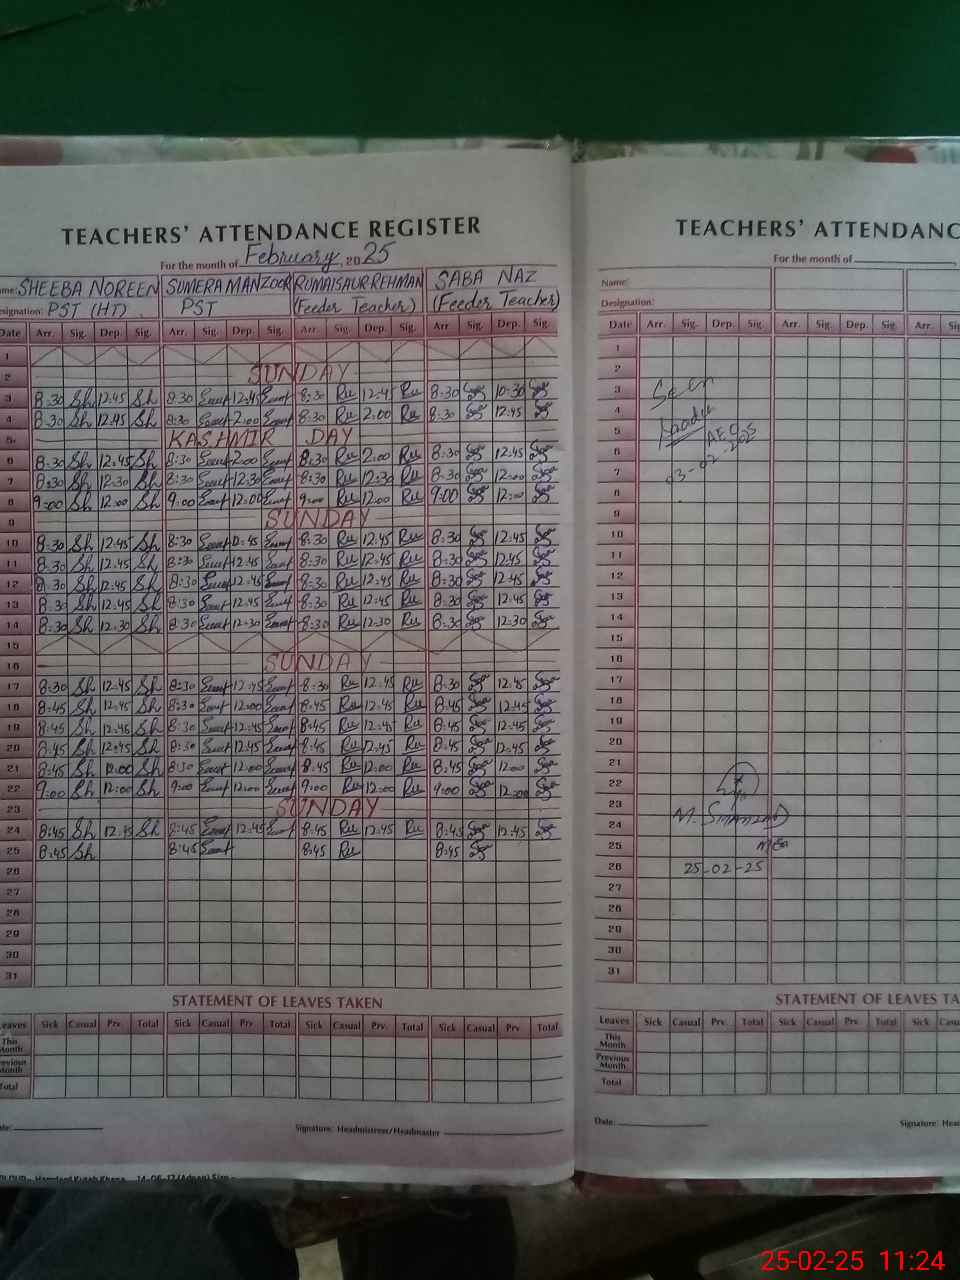 TEACHERS' ATTENDANCE REGISTER
For the month of February, 2025
SHEEBA NOREEN SUMERA MANZOOR RUMAISAUR REHMAN SABA NAZ
Designation: PST (HT) PST (Feeder Teacher) (Feeder Teacher)
Date Arr. Sig. Dep. Sig. Arr. Sig. Dep. Sig. Arr. Sig. Dep. Sig. Arr. Sig. Dep. Sig.
1
2 SUNDAY
3 8:30 Sh 12:45 Sh 8:30 12:45 8:30 Ru 12:45 Ru 8:30 10:30
4 8:30 Sh 12:45 Sh 8:30 2:00 8:30 Ru 2:00 Ru 8:30 12:45
5 KASHMIR DAY
6 8:30 Sh 12:45 Sh 8:30 2:00 8:30 Ru 2:00 Ru 8:30 12:45
7 8:30 Sh 12:30 Sh 8:30 12:30 8:30 Ru 12:30 Ru 8:30 12:00
8 9:00 Sh 12:00 Sh 9:00 12:00 9:00 Ru 12:00 Ru 9:00 12:00
9 SUNDAY
10 8:30 Sh 12:45 Sh 8:30 8:30 Ru 12:45 Ru 8:30 12:45
11 8:30 Sh 12:45 Sh 8:30 12:45 8:30 Ru 12:45 Ru 8:30 12:45
12 8:30 Sh 12:45 Sh 8:30 12:45 8:30 Ru 12:45 Ru 8:30 12:45
13 8:30 Sh 12:45 Sh 8:30 12:45 8:30 Ru 12:45 Ru 8:30 12:45
14 8:30 Sh 12:30 Sh 8:30 12:30 8:30 Ru 12:30 Ru 8:30 12:30
15
16 SUNDAY
17 8:30 Sh 12:45 Sh 8:30 12:45 8:30 Ru 12:45 Ru 8:30 12:45
18 8:45 Sh 12:45 Sh 8:30 12:00 8:45 Ru 12:45 Ru 8:45 12:45
19 8:45 Sh 12:45 Sh 8:30 12:45 8:45 Ru 12:45 Ru 8:45 12:45
20 8:45 Sh 12:45 Sh 8:30 12:45 8:45 Ru 12:45 Ru 8:45 12:45
21 8:45 Sh 12:00 Sh 8:30 12:00 8:45 Ru 12:00 Ru 8:45 12:00
22 9:00 Sh 12:00 Sh 9:00 12:00 9:00 Ru 12:00 Ru 9:00 12:00
23 SUNDAY
24 8:45 Sh 12:45 Sh 8:45 12:45 8:45 Ru 12:45 Ru 8:45 12:45
25 8:45 Sh 8:45 8:45 Ru 8:45
26
27
28
29
30
31
STATEMENT OF LEAVES TAKEN
Leaves Sick Casual Prv. Total Sick Casual Prv. Total Sick Casual Prv. Total Sick Casual Prv. Total
This Month
Previous Month
Total
Date: Signature: Headmistress/Headmaster
TEACHERS' ATTENDANC
For the month of
Name:
Designation:
Date Arr. Sig. Dep. Sig. Arr. Sig. Dep. Sig. Arr. Sig.
1
2
3 Seen
4
5 AEO
6
7 03-02-2025
8
9
10
11
12
13
14
15
16
17
18
19
20
21
22
23
24
25 MEA
26 25-02-25
27
28
29
30
31
STATEMENT OF LEAVES TA
Leaves Sick Casual Prv. Total Sick Casual Prv. Total Sick Casu
This Month
Previous Month
Total
Date: Signature: Hea
25-02-25 11:24